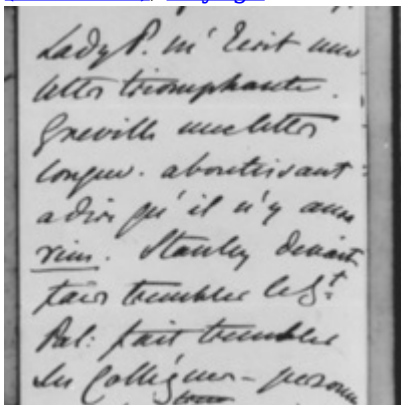 Lady P. m'écrit une
lettre triomphante.
Greville une lettre
longue. aboutissant
a dire qu'il n'y aura
rien. Stanley devait
faire trembler le Gt
Pal: fait trembler
les Collègues - personne